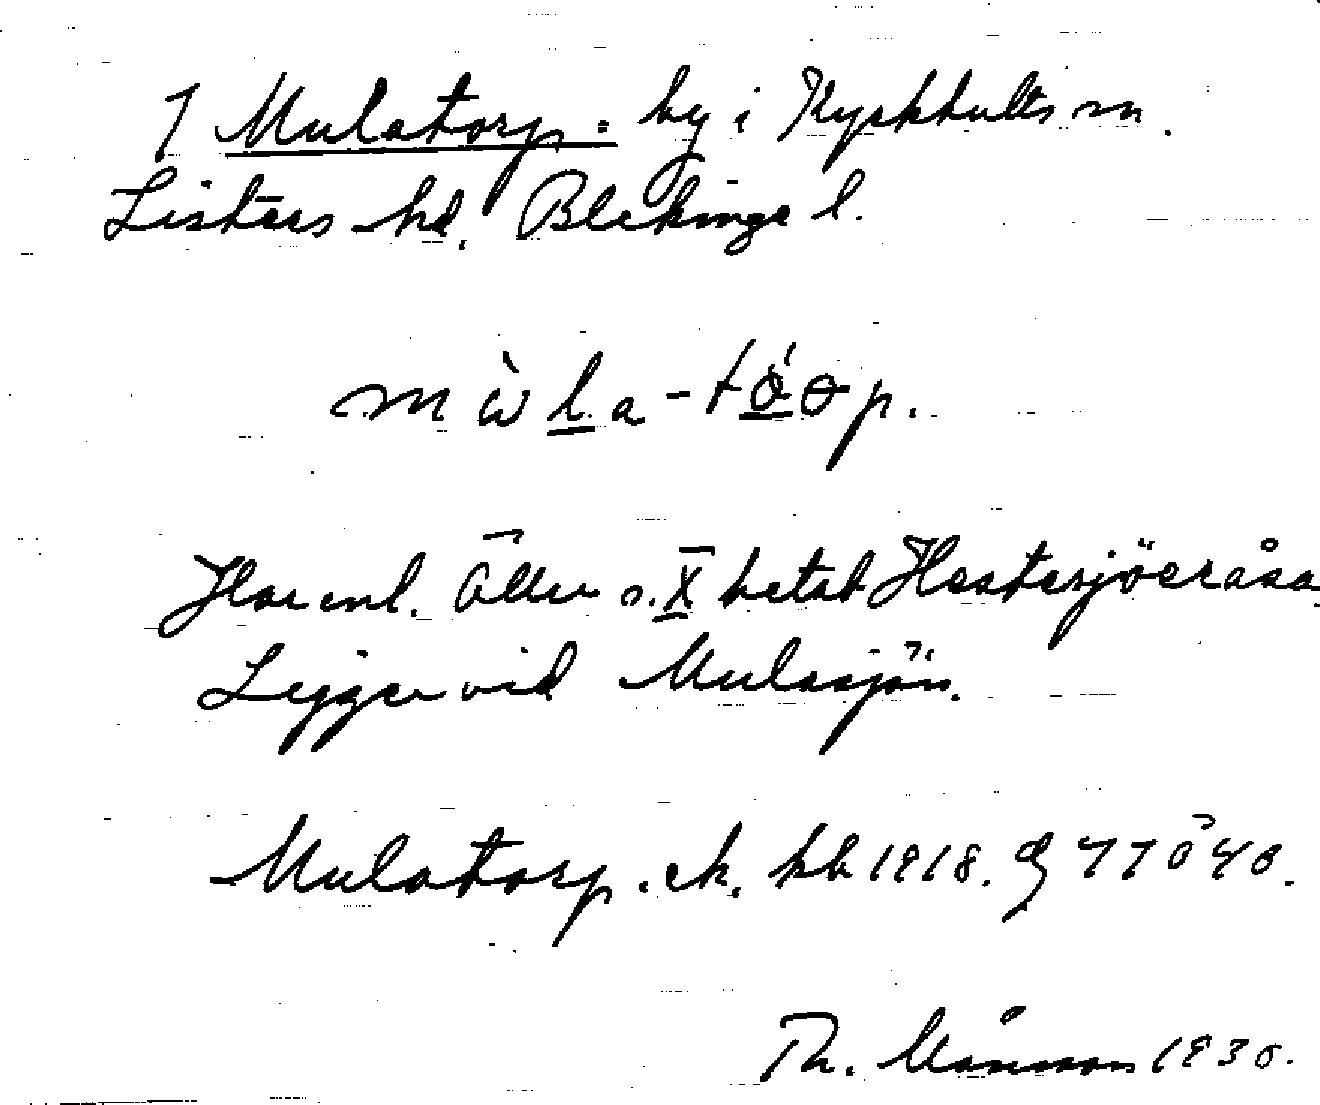 7 Mulatorp: by i Kyrkhults sn.
Listers hd. Blekinge l.
mùla-tóop.
Har enl. Öller s. X hetat Hestesjöeråsa
Ligger vid Mulasjön.
Mulatorp. ek. kb 1918.
Th. Månsson 1930.